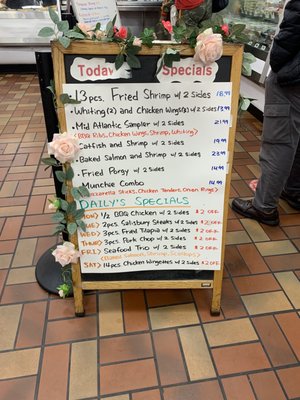 Today's Specials
13 pcs. Fried Shrimp w/ 2 Sides 18.99
Whiting(2) and Chicken Wings(2) w/ 2 Sides 13.99
Mid Atlantic Sampler w/ 2 Sides 21.99
(BBQ Ribs, Chicken Wings, Shrimp, Whiting)
Catfish and Shrimp w/ 2 Sides 19.99
Baked Salmon and Shrimp w/ 2 Sides 23.99
Fried Porgy w/ 2 Sides 14.99
Munchie Combo 14.99
(Mozzarella Sticks, Chicken Tenders, Onion Rings)
DAILY'S SPECIALS
MON) 1/2 BBQ Chicken w/ 2 Sides $2 OFF
TUE) 2pcs. Salisbury Steaks w/ 2 Sides $2 OFF
WED) 3pcs. Fried Tilapia w/ 2 Sides $2 OFF
THUR) 3pcs. Pork Chop w/ 2 Sides $2 OFF
FRI) Seafood Trio w/ 2 Sides $2 OFF
SAT) 14 pcs. Chicken Wingettes w/ 2 Sides $2 OFF